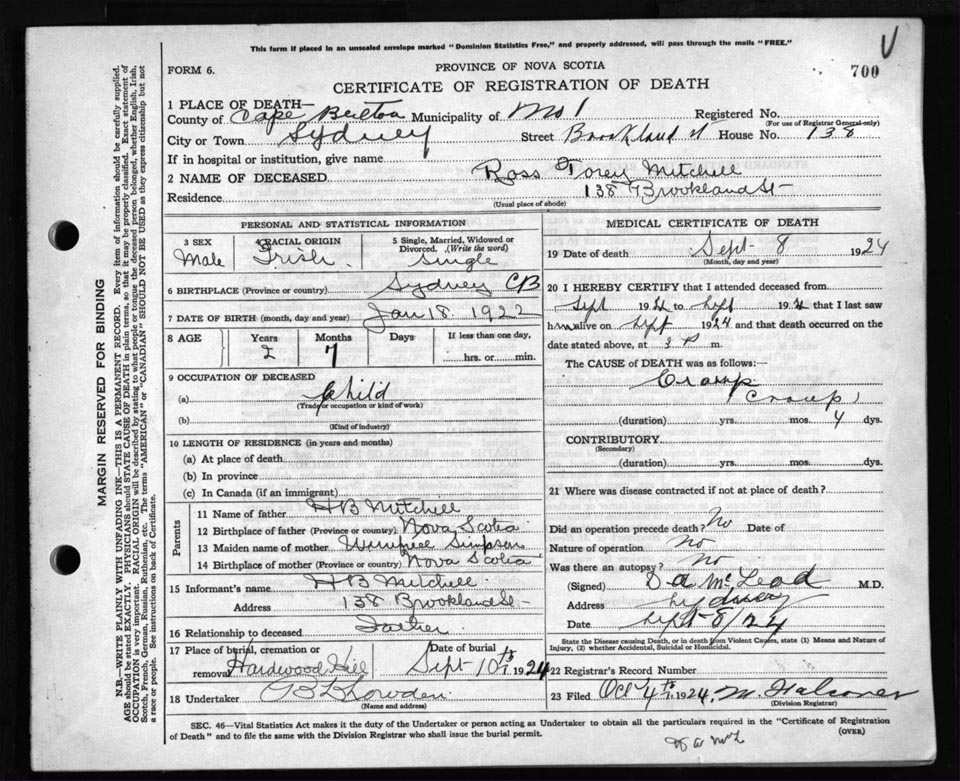 This form if placed in an unsealed envelope marked "Dominion Statistics Free," and properly addressed, will pass through the mails "FREE."
V
FORM 6.
PROVINCE OF NOVA SCOTIA
700
CERTIFICATE OF REGISTRATION OF DEATH
1 PLACE OF DEATH—
County of Cape Breton Municipality of Registered No.
(For use of Registrar General only)
City or Town Sydney Street Brookland St House No. 138
If in hospital or institution, give name
2 NAME OF DECEASED Ross Torey Mitchell
Residence 138 Brookland St
(Usual place of abode)
PERSONAL AND STATISTICAL INFORMATION
3 SEX 4 RACIAL ORIGIN 5 Single, Married, Widowed or Divorced. (Write the word)
Male Irish Single
6 BIRTHPLACE (Province or country) Sydney CB
7 DATE OF BIRTH (month, day and year) Jan 18. 1922
8 AGE Years Months Days If less than one day,
2 7 hrs. or min.
9 OCCUPATION OF DECEASED
(a) Child
(Trade or occupation or kind of work)
(b)
(Kind of industry)
10 LENGTH OF RESIDENCE (in years and months)
(a) At place of death
(b) In province
(c) In Canada (if an immigrant)
Parents
11 Name of father H B Mitchell
12 Birthplace of father (Province or country) Nova Scotia
13 Maiden name of mother Simpson
14 Birthplace of mother (Province or country) Nova Scotia
15 Informant's name H B Mitchell
Address 138 Brookland St
16 Relationship to deceased Father
17 Place of burial, cremation or removal Hardwood Hill Date of burial Sept 10th 1924
18 Undertaker
(Name and address)
MEDICAL CERTIFICATE OF DEATH
19 Date of death Sept 8 1924
(Month, day and year)
20 I HEREBY CERTIFY that I attended deceased from
Sept 1924 to Sept 192 4 that I last saw
him alive on Sept 1924 and that death occurred on the
date stated above, at 3 P m.
The CAUSE OF DEATH was as follows:—
Croup
Croup
(duration) yrs. mos. 4 dys.
CONTRIBUTORY
(Secondary)
(duration) yrs. mos. dys.
21 Where was disease contracted if not at place of death?
Did an operation precede death? No Date of
Nature of operation no
Was there an autopsy? no
(Signed) D A McLeod M.D.
Address Sydney
Date Sept 8/24
State the Disease causing Death, or in death from Violent Causes, state (1) Means and Nature of
Injury, (2) whether Accidental, Suicidal or Homicidal.
22 Registrar's Record Number
23 Filed Oct 4th 1924. M. Falconer
(Division Registrar)
SEC. 46—Vital Statistics Act makes it the duty of the Undertaker or person acting as Undertaker to obtain all the particulars required in the "Certificate of Registration
of Death" and to file the same with the Division Registrar who shall issue the burial permit.
(OVER)
MARGIN RESERVED FOR BINDING
N.B.—WRITE PLAINLY WITH UNFADING INK—THIS IS A PERMANENT RECORD. Every item of information should be carefully supplied.
AGE should be stated EXACTLY. PHYSICIANS should STATE CAUSE OF DEATH in plain terms, so that it may be properly classified. Exact statement of
OCCUPATION is very important. RACIAL ORIGIN will be described by stating to what people or tongue the deceased person belonged, whether English, Irish,
Scotch, French, German, Russian, Ruthenian, etc. The terms "AMERICAN" or "CANADIAN" SHOULD NOT BE USED as they express citizenship but not
a race or people. See instructions on back of Certificate.